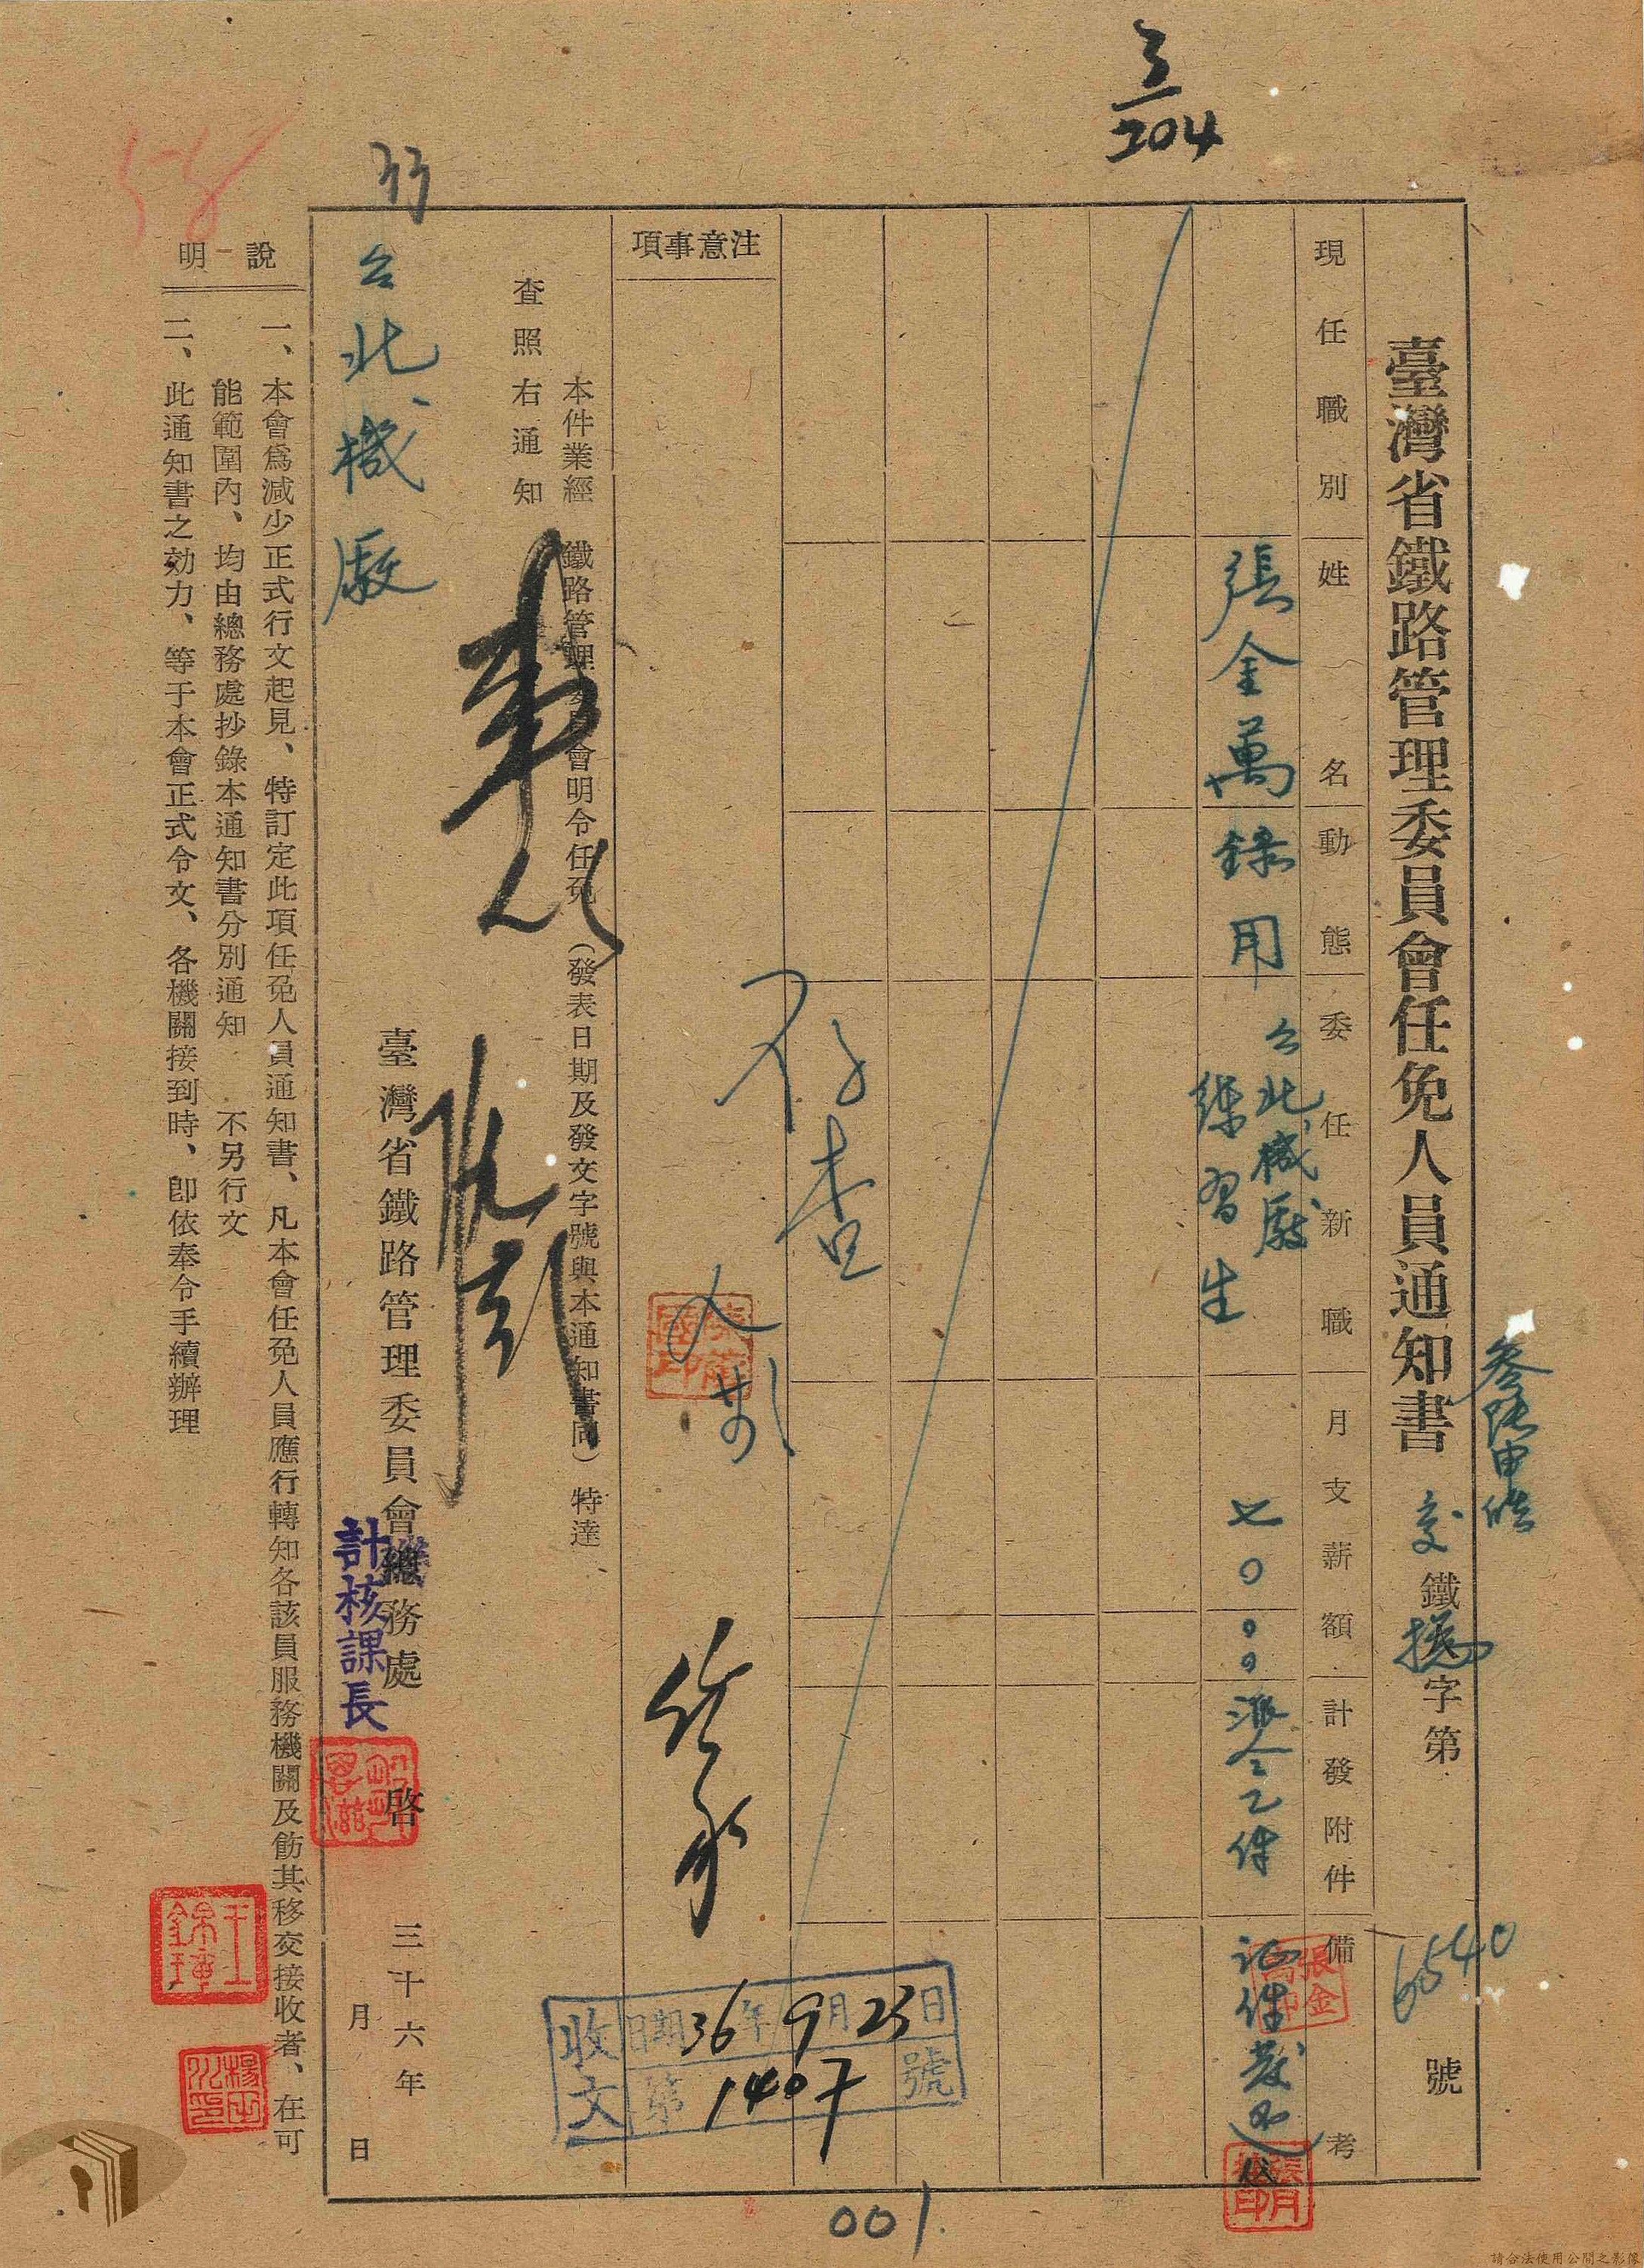 3
204
58
臺灣省鐵路管理委員會任免人員通知書
交鐵擴字第6540號
現任職別
姓名
動態
委任新職
月支薪額
計發附件
備考
張金萬
錄用
台北機廠
練習生
七〇.〇〇
派令乙件
証件發還
注意事項
存查
本件業經 鐵路管理委員會明令任免(發表日期及發文字號與本通知書同)特達
查照右通知
台北機廠
臺灣省鐵路管理委員會總務處 啓
計核課長
三十六年 月 日
收文
日期36年9月23日
第1407號
說明
一、本會爲減少正式行文起見、特訂定此項任免人員通知書、凡本會任免人員應行轉知各該員服務機關及飭其移交接收者、在可
能範圍內、均由總務處抄錄本通知書分別通知 不另行文
二、此通知書之効力、等于本會正式令文、各機關接到時、卽依奉令手續辦理
001
請合法使用公開之影像